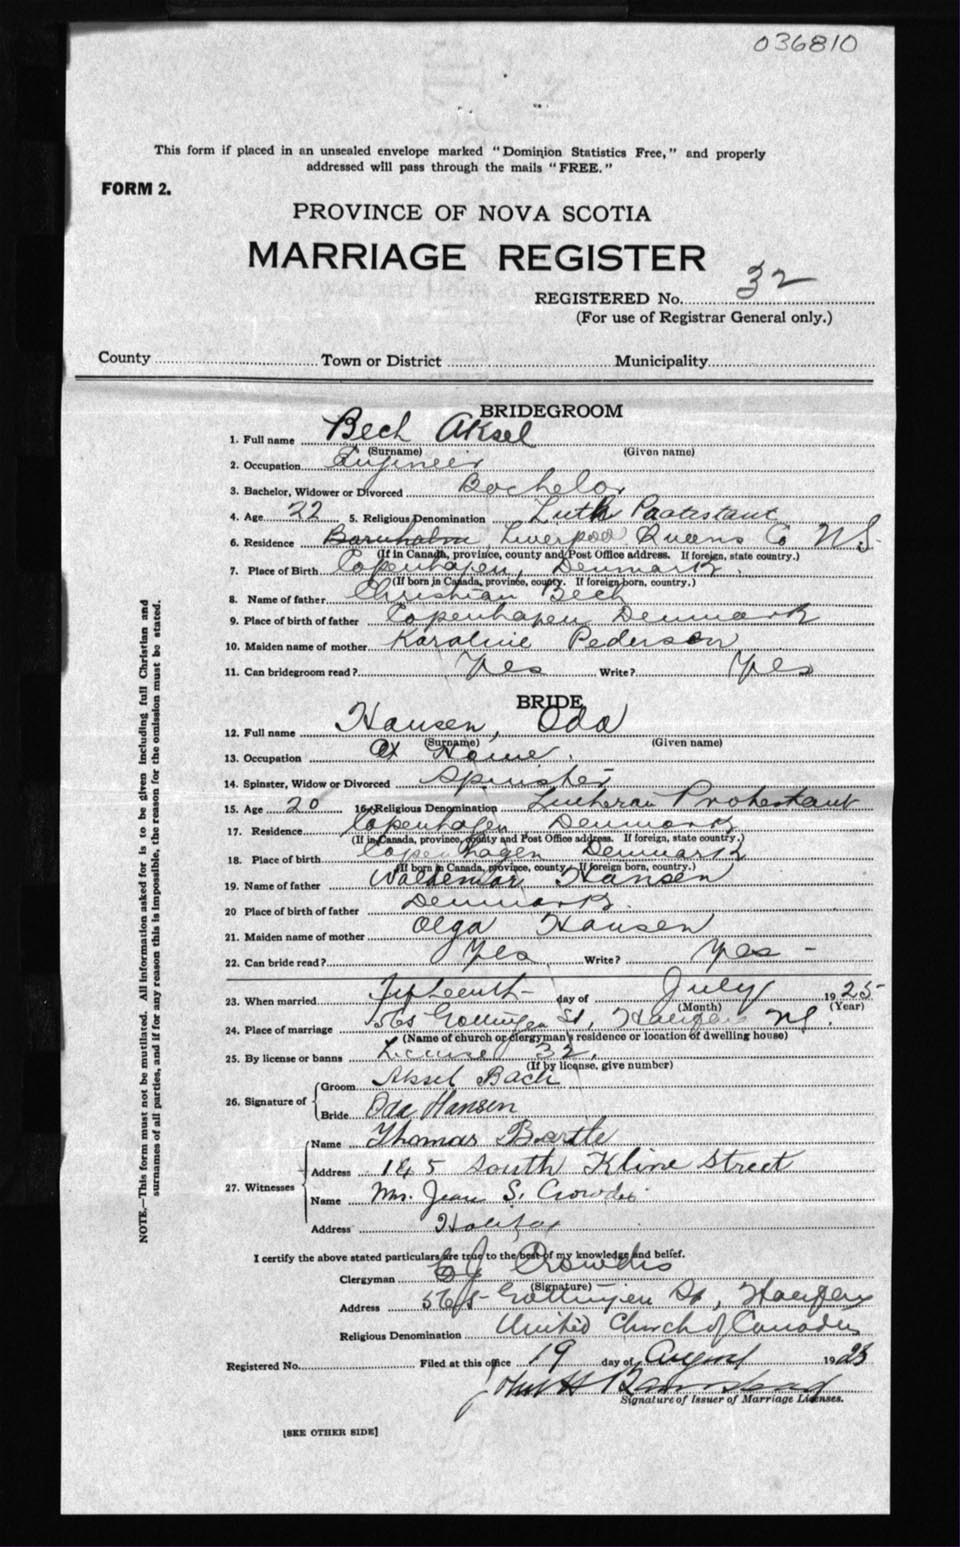 036810
This form if placed in an unsealed envelope marked "Dominion Statistics Free," and properly
addressed will pass through the mails "FREE."
FORM 2.
PROVINCE OF NOVA SCOTIA
MARRIAGE REGISTER
REGISTERED No. 32
(For use of Registrar General only.)
County Town or District Municipality
BRIDEGROOM
1. Full name Bech Aksel
(Surname) (Given name)
2. Occupation Engineer
3. Bachelor, Widower or Divorced Bachelor
4. Age 22 5. Religious Denomination Luth Protestant
6. Residence Liverpool Queens Co N.S.
(If in Canada, province, county and Post Office address. If foreign, state country.)
7. Place of Birth Copenhagen, Denmark.
(If born in Canada, province, county. If foreign born, country.)
8. Name of father Christian Bech
9. Place of birth of father Copenhagen Denmark
10. Maiden name of mother Karoline Pederson
11. Can bridegroom read? Yes Write? Yes
BRIDE
12. Full name Hansen, Oda
(Surname) (Given name)
13. Occupation At Home.
14. Spinster, Widow or Divorced Spinster
15. Age 20 16. Religious Denomination Lutheran Protestant
17. Residence Copenhagen Denmark
(If in Canada, province, county and Post Office address. If foreign, state country.)
18. Place of birth Copenhagen Denmark
(If born in Canada, province, county. If foreign born, country.)
19. Name of father Waldemar Hansen
20 Place of birth of father Denmark.
21. Maiden name of mother Olga Hansen
22. Can bride read? Yes Write? Yes -
23. When married Fifteenth day of July 1925
(Month) (Year)
24. Place of marriage Gottingen St, Halifax N.S.
(Name of church or clergyman's residence or location of dwelling house)
25. By license or banns License 32.
(If by license, give number)
26. Signature of Groom Aksel Bech
Bride Oda Hansen
27. Witnesses Name Thomas Bartle
Address 185 South Kline Street
Name Mrs. Jean S. Crowdis
Address Halifax
I certify the above stated particulars are true to the best of my knowledge and belief.
Clergyman C J Crowdis
(Signature)
Address Gottingen St, Halifax
Religious Denomination United Church of Canada
Registered No. Filed at this office 19 day of August 1925
John H
Signature of Issuer of Marriage Licenses.
[SEE OTHER SIDE]
NOTE.—This form must not be mutilated. All information asked for is to be given including full Christian and
surnames of all parties, and if for any reason this is impossible, the reason for the omission must be stated.